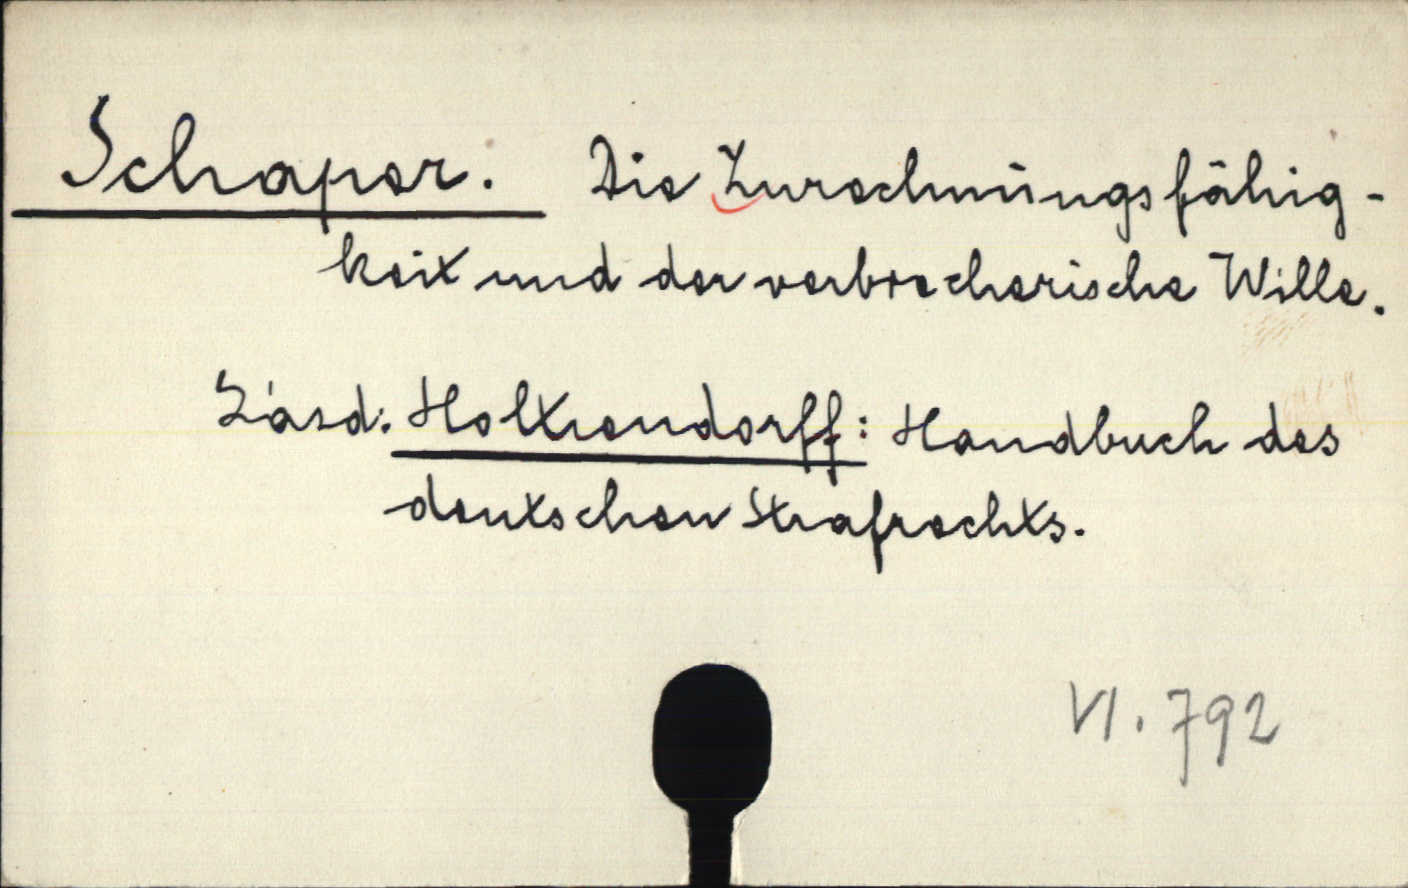 Schaper. Die Zurechnüngsfähig-
keit und der verbrecherische Wille.
Lásd. Holtzendorff: Handbuch des
deutschen Strafrechts.
VI. 792